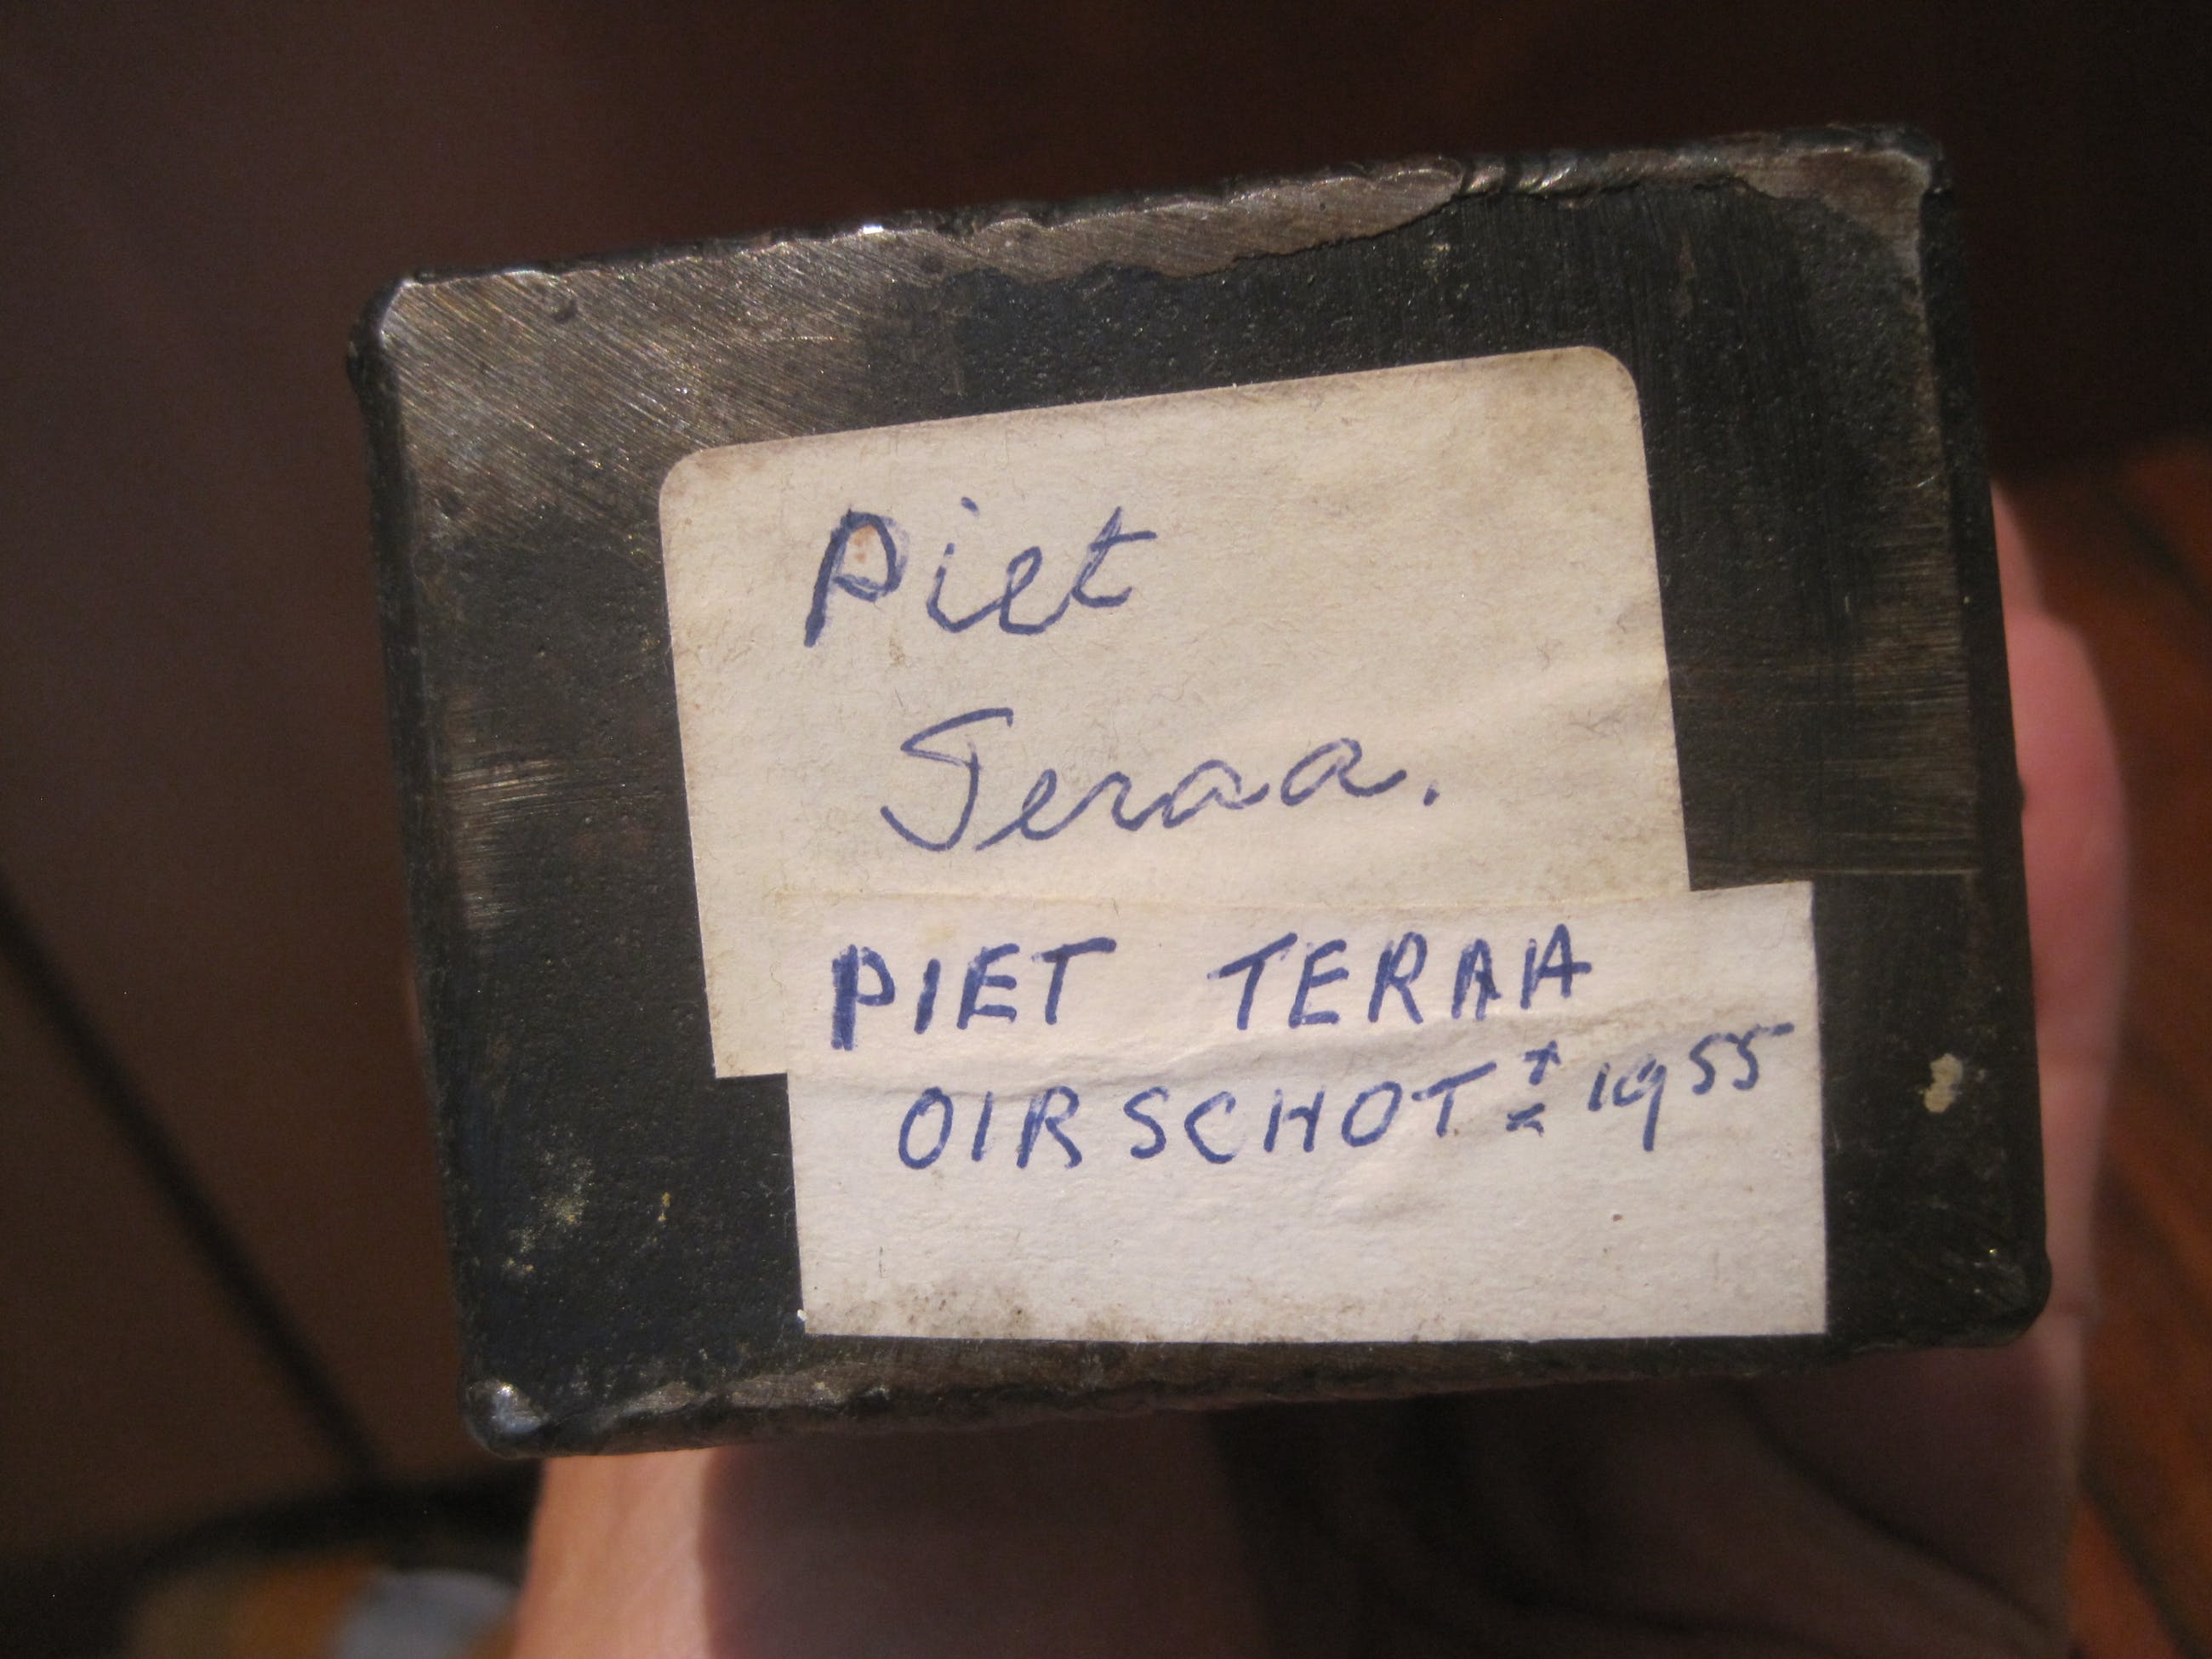 Piet
Teraa.
PIET TERAA
OIRSCHOT ± 1955